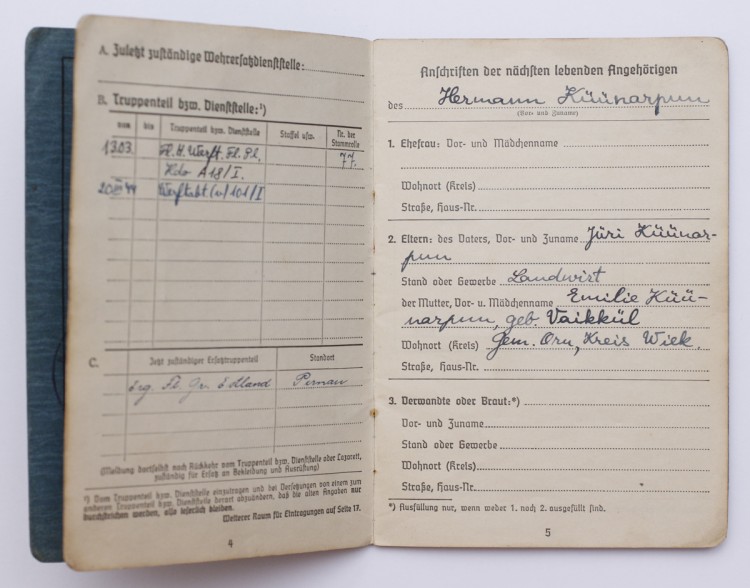 A. Zuletzt zuständige Wehrersatzdienststelle:
B. Truppenteil bzw. Dienststelle:¹)
von bis Truppenteil bzw. Dienststelle Staffel usw. Nr. der Stammrolle
1303. Fl. H. Werft. Fl. Pl. 77.
Kdo A18/I.
20. III 44 Werftabt. (v) 101/I
C. Jetzt zuständiger Ersatztruppenteil Standort
Erg. Fl. Gr. Estland Pernau
(Meldung dortselbst nach Rückkehr vom Truppenteil bzw. Dienststelle oder Lazarett,
zuständig für Ersatz an Bekleidung und Ausrüstung)
¹) Vom Truppenteil bzw. Dienststelle einzutragen und bei Versetzungen von einem zum
anderen Truppenteil bzw. Dienststelle derart abzuändern, daß die alten Angaben nur
durchstrichen werden, also leserlich bleiben.
Weiterer Raum für Eintragungen auf Seite 17.
4
Anschriften der nächsten lebenden Angehörigen
des Hermann Küünarpuu
(Vor- und Zuname)
1. Ehefrau: Vor- und Mädchenname
Wohnort (Kreis)
Straße, Haus-Nr.
2. Eltern: des Vaters, Vor- und Zuname Jüri Küünar-
puu
Stand oder Gewerbe Landwirt
der Mutter, Vor- u. Mädchenname Emilie Küü-
narpuu, geb. Vaikkül
Wohnort (Kreis) Gem. Oru, Kreis Wiek.
Straße, Haus-Nr.
3. Verwandte oder Braut:*)
Vor- und Zuname
Stand oder Gewerbe
Wohnort (Kreis)
Straße, Haus-Nr.
*) Ausfüllung nur, wenn weder 1. noch 2. ausgefüllt sind.
5